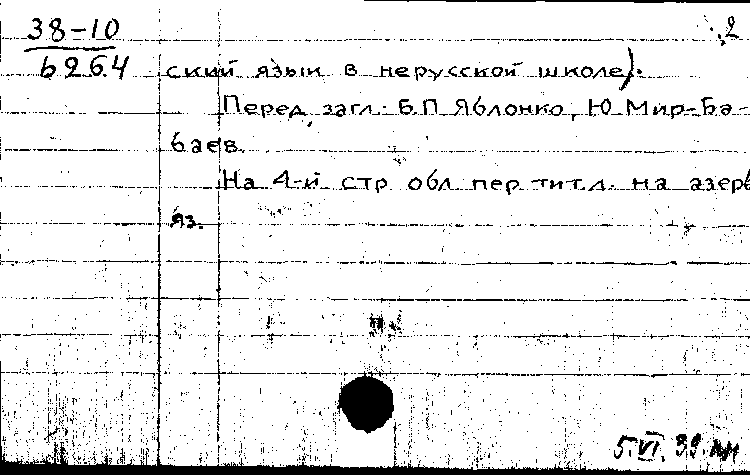 38-10
6264
2
ский язык в нерусской школе).
Перед загл. Б.П Яблонко, Ю Мир-Ба-
баев.
На 4-й стр обл пер тит.л. на азерб
яз.
5.VI.39.